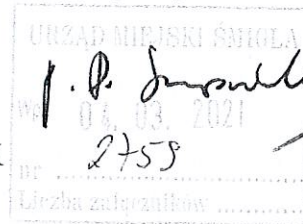 URZĄD MIEJSKI ŚMIGLA
Wpł. 04. 03. 2021
2759
nr
Liczba załączników